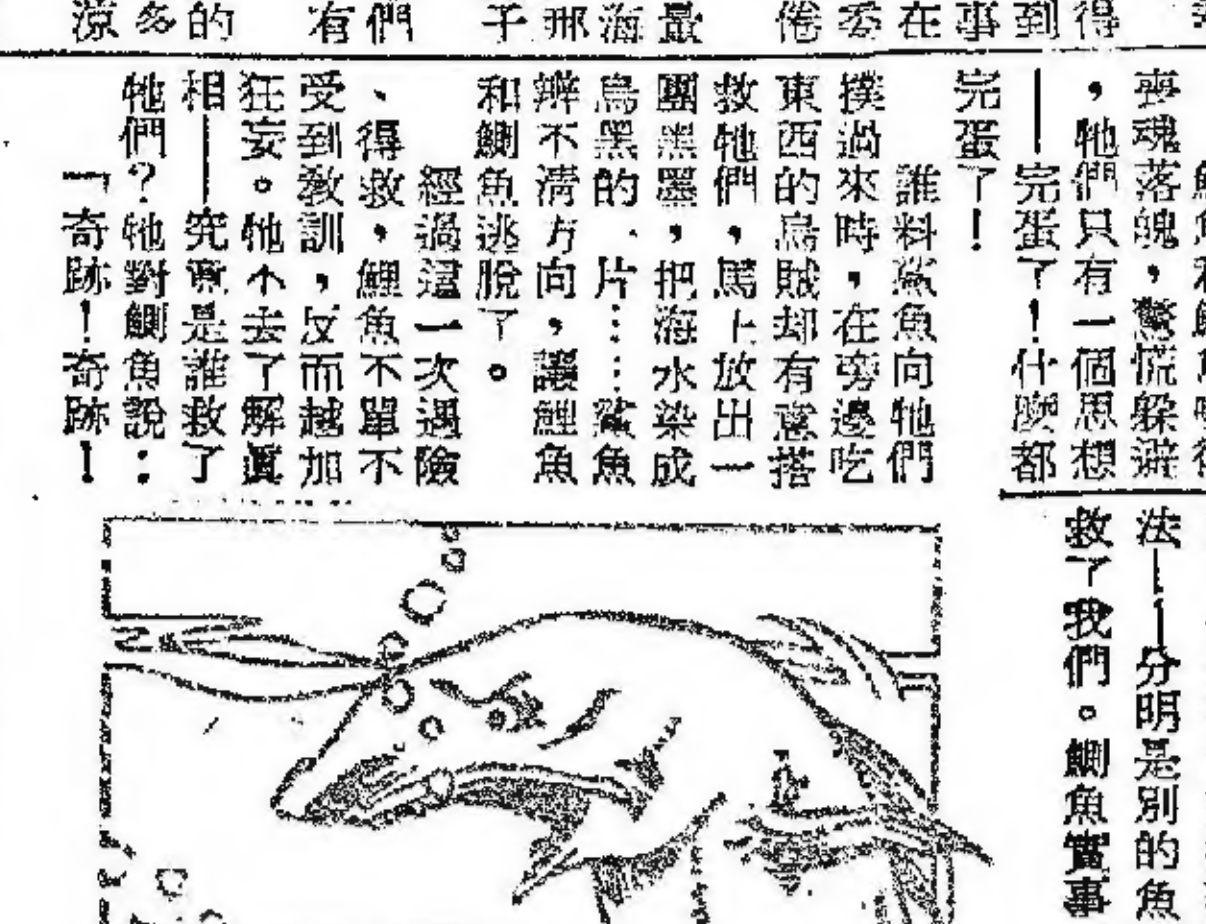 得
到
事
在
委
倦
最
海
邢
子
們
有
的
多
涼
喪魂落魄，驚慌躲避
，牠們只有一個思想
——完蛋了！什麼都
完蛋了！
誰料鯊魚向牠們
撲過來時，在旁邊吃
東西的烏賊却有意搭
救牠們，馬上放出一
團黑墨，把海水染成
烏黑的一片……鯊魚
辨不清方向，讓鯉魚
和鯽魚逃脫了。
經過這一次遇險
、得救，鯉魚不單不
受到教訓，反而越加
狂妄。牠不去了解眞
相——究竟是誰救了
牠們？牠對鯽魚說：
「奇跡！奇跡！
法——分明是別的魚
救了我們。鯽魚實事